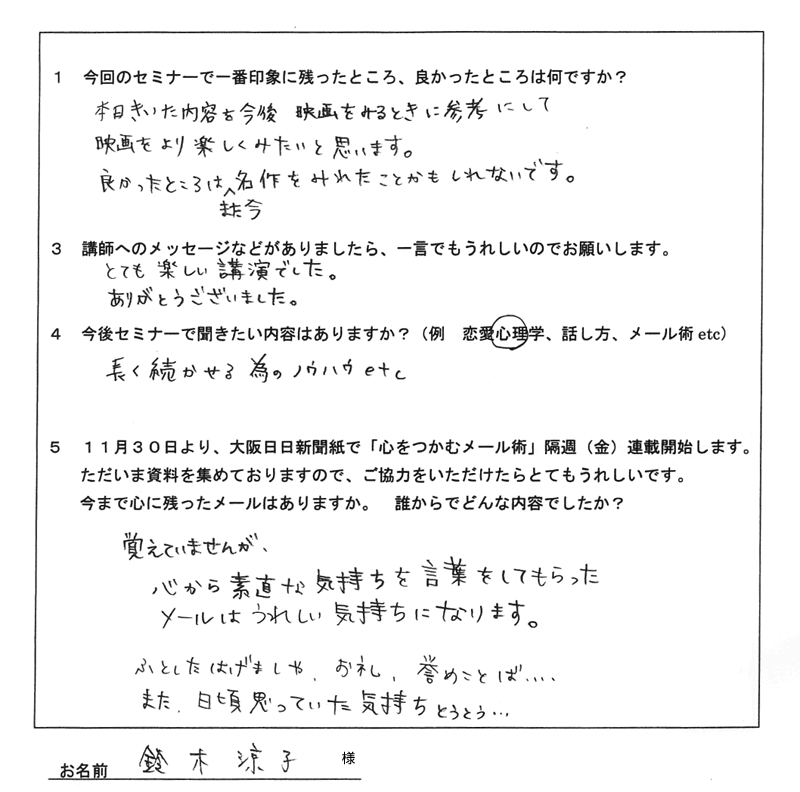 1 今回のセミナーで一番印象に残ったところ、良かったところは何ですか?
本日きいた内容を今後 映画をみるときに参考にして
映画をより楽しくみたいと思います。
良かったところは、名作をみれたことかもしれないです。
また今
3 講師へのメッセージなどがありましたら、一言でもうれしいのでお願いします。
とても楽しい講演でした。
ありがとうございました。
4 今後セミナーで聞きたい内容はありますか?(例 恋愛心理学、話し方、メール術 etc)
長く続かせる為のノウハウ etc
5 11月30日より、大阪日日新聞紙で「心をつかむメール術」隔週(金)連載開始します。
ただいま資料を集めておりますので、ご協力をいただけたらとてもうれしいです。
今まで心に残ったメールはありますか。 誰からでどんな内容でしたか?
覚えていませんが、
心から素直な気持ちを言葉をしてもらった
メールはうれしい気持ちになります。
ふとしたはげましや、お礼、誉めことば....
また、日頃思っていた気持ちとうとう...
お名前 鈴木涼子 様